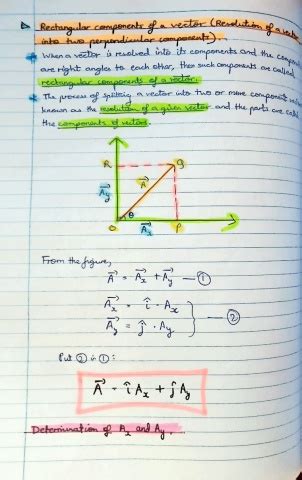 Rectangular components of a vector (Resolution of a vector
into two perpendicular components).
When a vector is resolved into its components and the
are right angles to each other, then such components are called
rectangular components of a vector.
The process of splitting a vector into two or more components
known as the resolution of a given vector and the parts are
the components of vectors.
R Q
A⃗y A⃗
θ
O A⃗x P
From the figure,
A⃗ = A⃗x + A⃗y — ①
A⃗x = î · Ax
A⃗y = ĵ · Ay } — ②
Put ② in ①:
A⃗ = îAx + ĵAy
Determination of Ax and Ay.